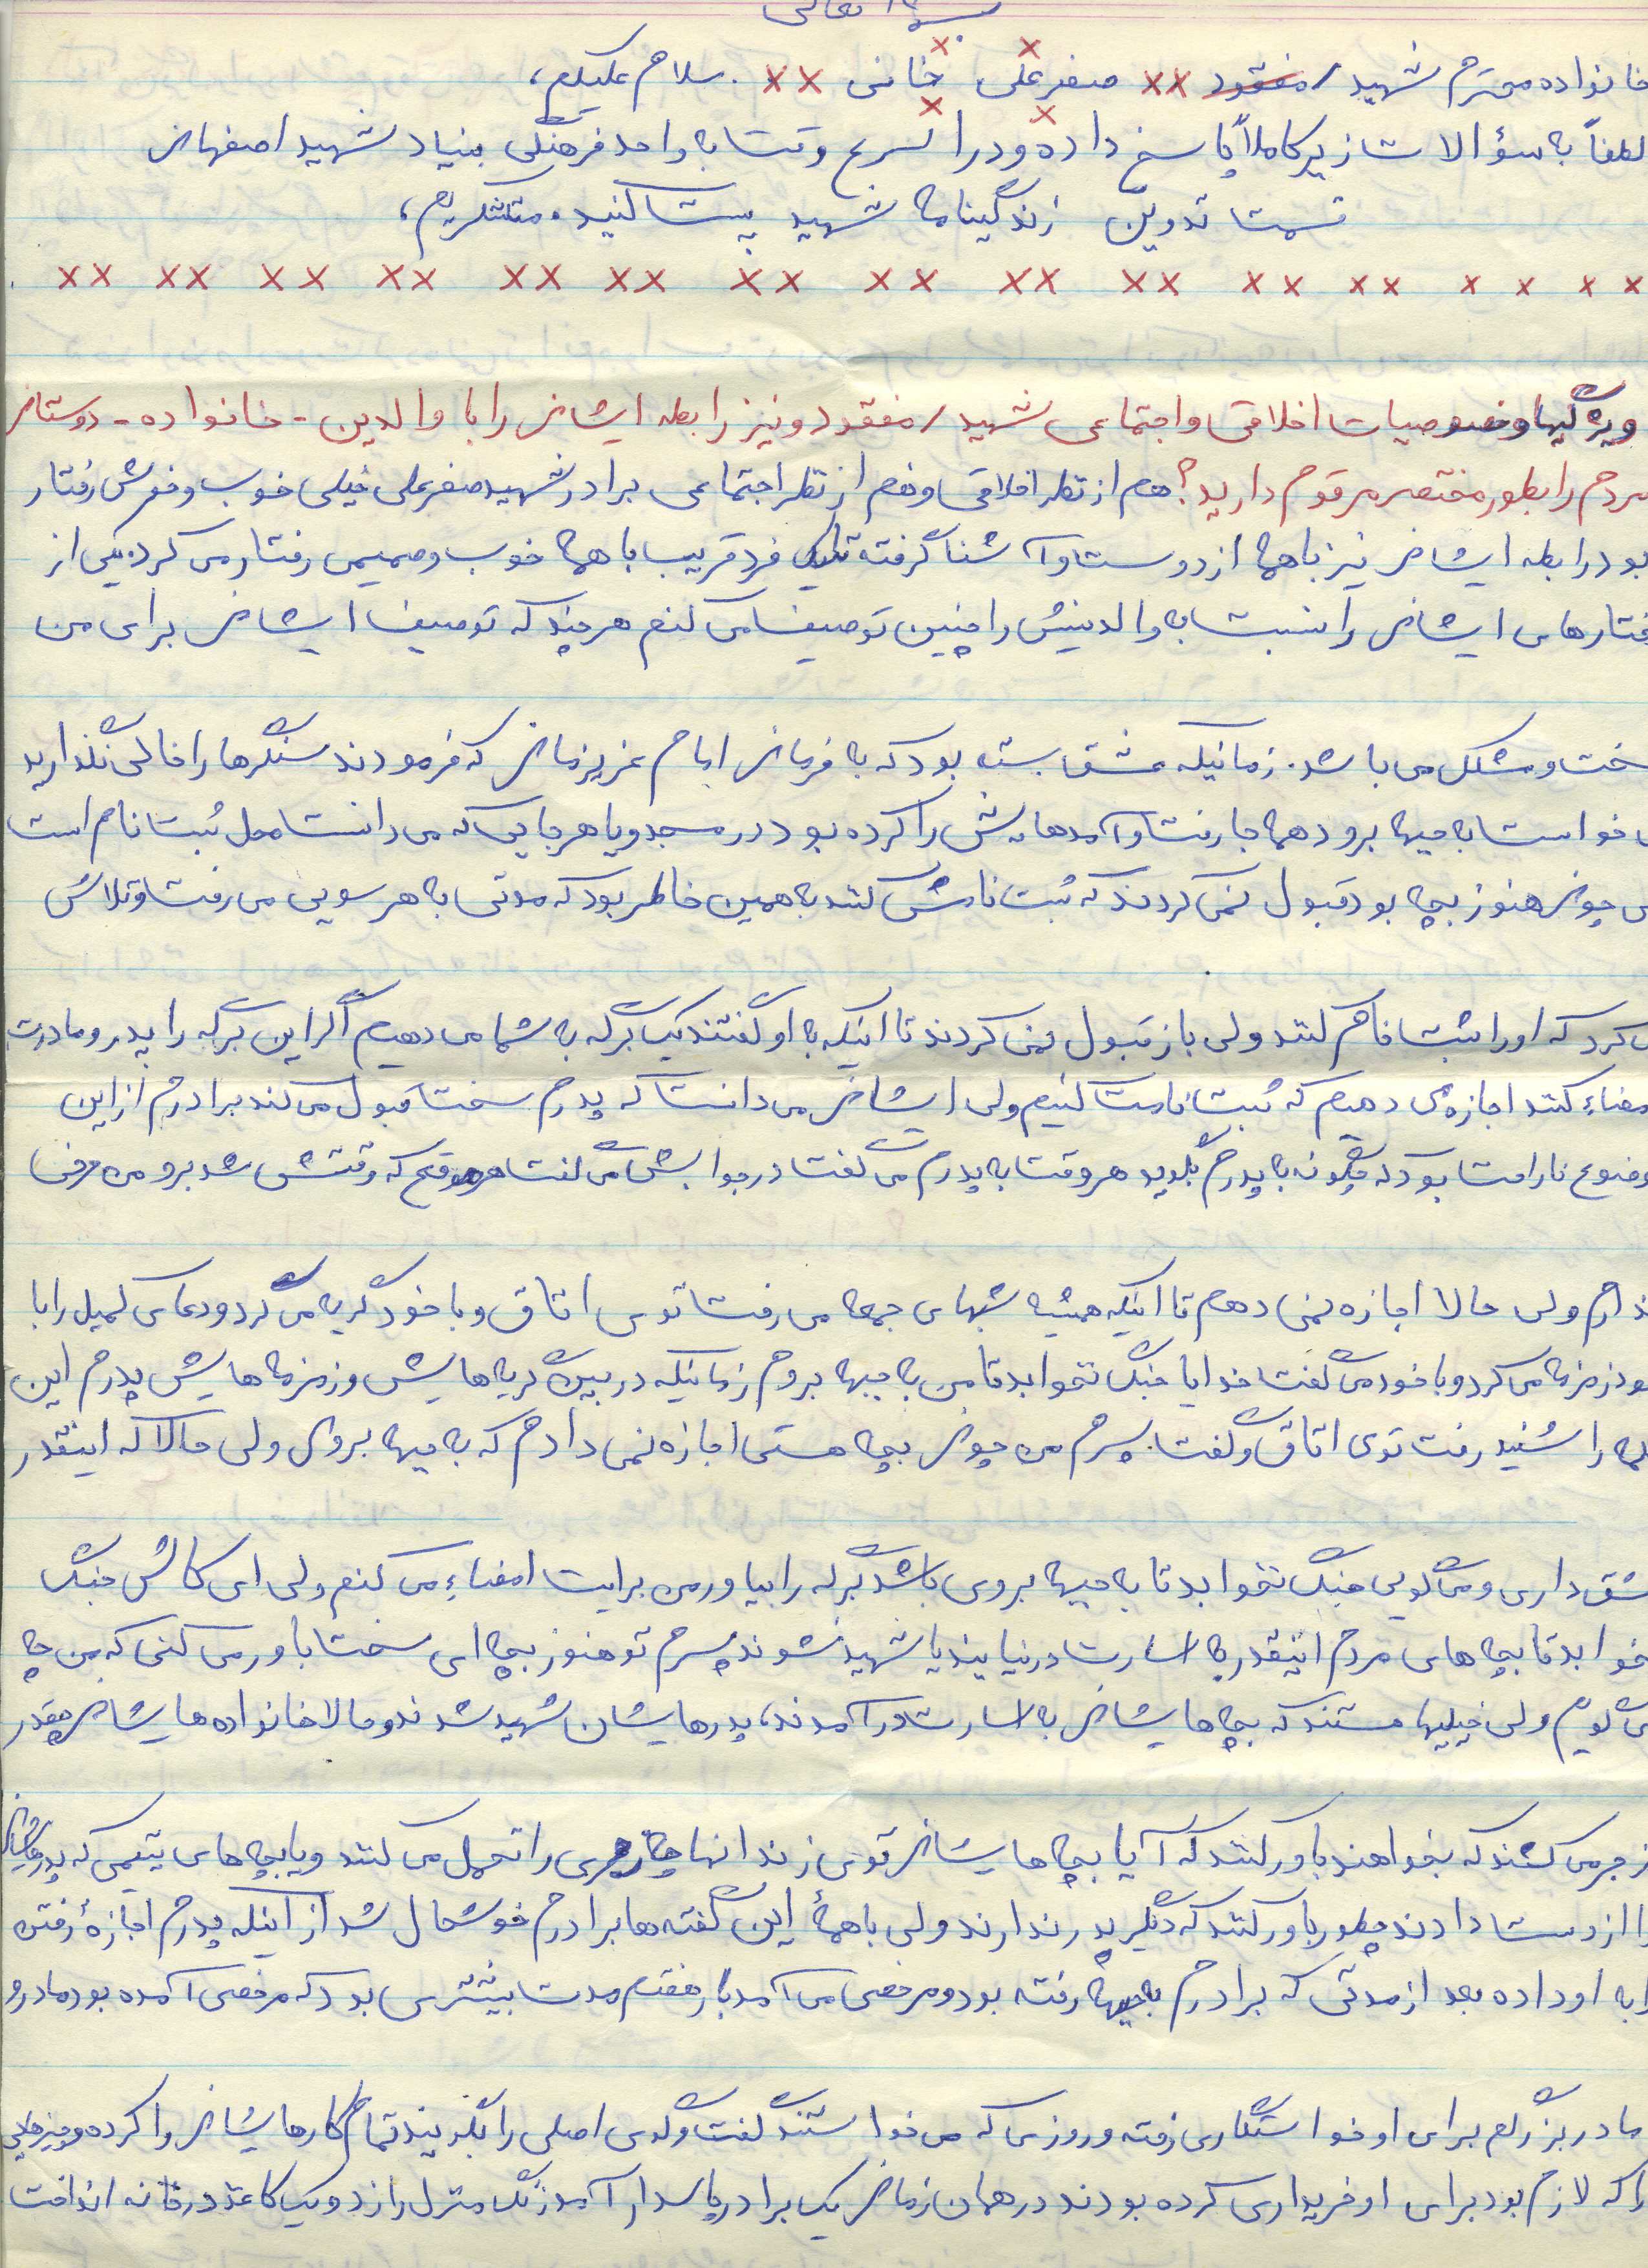 بسمه تعالی
خانواده محترم شهید/مفقود ×× صفرعلی خانی ××. سلام علیکم،
لطفاً به سؤالات زیر کاملاً پاسخ داده و در اسرع وقت به واحد فرهنگی بنیاد شهید اصفهان
قسمت تدوین زندگینامه شهید پست کنید. متشکریم،
×× ×× ×× ×× ×× ×× ×× ×× ×× ×× ×× ×× × × × ×
ویژگیها و خصوصیات اخلاقی و اجتماعی شهید/مفقود و نیز رابطه ایشان را با والدین - خانواده - دوستان
مردم را بطور مختصر مرقوم دارید؟ هم از نظر اخلاقی و هم از نظر اجتماعی برادر شهید صفرعلی خیلی خوب و خوش رفتار
بود رابطه ایشان نیز با همه از دوست و آشنا گرفته تا یک فرد قریب با همه خوب و صمیمی رفتار می کرد. یکی از
رفتارهای ایشان را نسبت به والدینش را چنین توصیف می کنم هر چند که توصیف ایشان برای من
سخت و مشکل می باشد. زمانیکه عشق بسته بود که به فرمان امام عزیزمان که فرمودند سنگرها را خالی نگذارید
می خواست به جبهه برود همه جا رفت و آمدهایش را کرده بود در مسجد و یا هر جایی که می دانست محل ثبت نام است
ولی چون هنوز بچه بود قبول نمی کردند که ثبت نامش کنند به همین خاطر بود که مدتی به هر سویی می رفت و تلاش
می کرد که او را ثبت نام کنند ولی باز قبول نمی کردند تا اینکه به او گفتند یک برگه به شما می دهیم اگر این برگه را پدر و مادرت
امضاء کنند اجازه می دهیم که ثبت نامت کنیم ولی ایشان می دانست که پدرم سخت قبول می کند برادرم از این
موضوع ناراحت بود که چگونه به پدرم بگوید هر وقت به پدرم می گفت در جوابش می گفت هر موقع که وقتش شد برو من حرفی
ندارم ولی حالا اجازه نمی دهم تا اینکه همیشه شبهای جمعه می رفت توی اتاق و با خود گریه می کرد و دعای کمیل را با
خود زمزمه می کرد و با خود می گفت خدایا جنگ نخوابد تا من به جبهه بروم زمانیکه در بین گریه هایش و زمزمه هایش پدرم این
کلمه را شنید رفت توی اتاق و گفت. پسرم من چون بچه هستی اجازه نمی دادم که به جبهه بروی ولی حالا که اینقدر
عشق داری و می گویی جنگ نخوابد تا به جبهه بروی باشد برگه را بیاور من برایت امضاء می کنم ولی ای کاش جنگ
بخوابد تا بچه های مردم اینقدر به اسارت در نیایند یا شهید نشوند پسرم تو هنوز بچه ای سخت باور می کنی که من چه
می گویم ولی خیلیها هستند که بچه هایشان به اسارت درآمدند، پدرهایشان شهید شدند و حالا خانواده هایشان چقدر
زجر می کشند که بخواهند باور کنند که آیا بچه هایشان توی زندانها چه زجری را تحمل می کنند و یا بچه های یتیمی که پدرهایشان
را از دست دادند چطور باور کنند که دیگر پدر ندارند ولی با همهٔ این گفته ها برادرم خوشحال شد از اینکه پدرم اجازهٔ رفتن
را به او داده بعد از مدتی که برادرم به جبهه رفته بود و مرخصی می آمد بار هفتم مدت بیشتری بود که مرخصی آمده بود مادر و
مادربزرگم برای او خواستگاری رفته و روزی که می خواستند گفت و گوی اصلی را بگویند تمام کارهایشان را کرده و چیزهایی
را که لازم بود برای او خریداری کرده بودند در همان زمان یک برادر پاسدار آمد زنگ منزل را زد و یک کاغذ در خانه انداخت